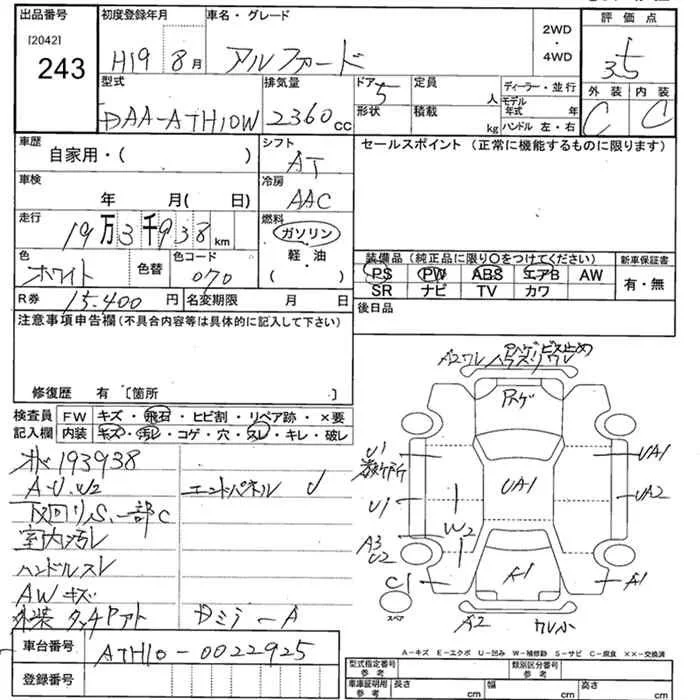 出品番号
[2042]
243
初度登録年月
H19 8月
車名・グレード
アルファード
2WD
・
4WD
評価点
3.5
外装 内装
C C
型式
DAA-ATH10W
排気量
2360cc
ドア 5
形状
定員 人
積載 kg
ディーラー・並行
モデル年式 年
ハンドル 左・右
車歴
自家用・( )
シフト
AT
車検
年 月( 日)
冷房
AAC
走行
19万3千938km
燃料
ガソリン
軽・油
( )
色
ホワイト
色替
色コード
070
R券 15.400円
名変期限 月 日
セールスポイント(正常に機能するものに限ります)
装備品(純正品に限り〇をつけてください)
PS PW ABS エアB AW
SR ナビ TV カワ
新車保証書
有・無
後日品
注意事項申告欄(不具合内容等は具体的に記入して下さい)
修復歴 有 [箇所 ]
検査員記入欄
FW キズ・飛石・ヒビ割・リペア跡・×要
内装 キズ・汚レ・コゲ・穴・スレ・キレ・破レ
193938
A・U.W2
エンドパネル U
下回りS.一部C
室内汚レ
ハンドルスレ
AWキズ
外装タッチPアト
車台番号
ATH10-0022925
登録番号
Pハゲ ビス止め
Pハゲ
U1
UA1
U1
UA1
UA2
W2
A3
U2
C1
A1
A1
A2
スペア
A-キズ E-エクボ U-凹み W-補修跡 S-サビ C-腐食 ××-交換済
型式指定番号
参考
類別区分番号
参考
車庫証明用
参考
長さ cm
幅 cm
高さ cm